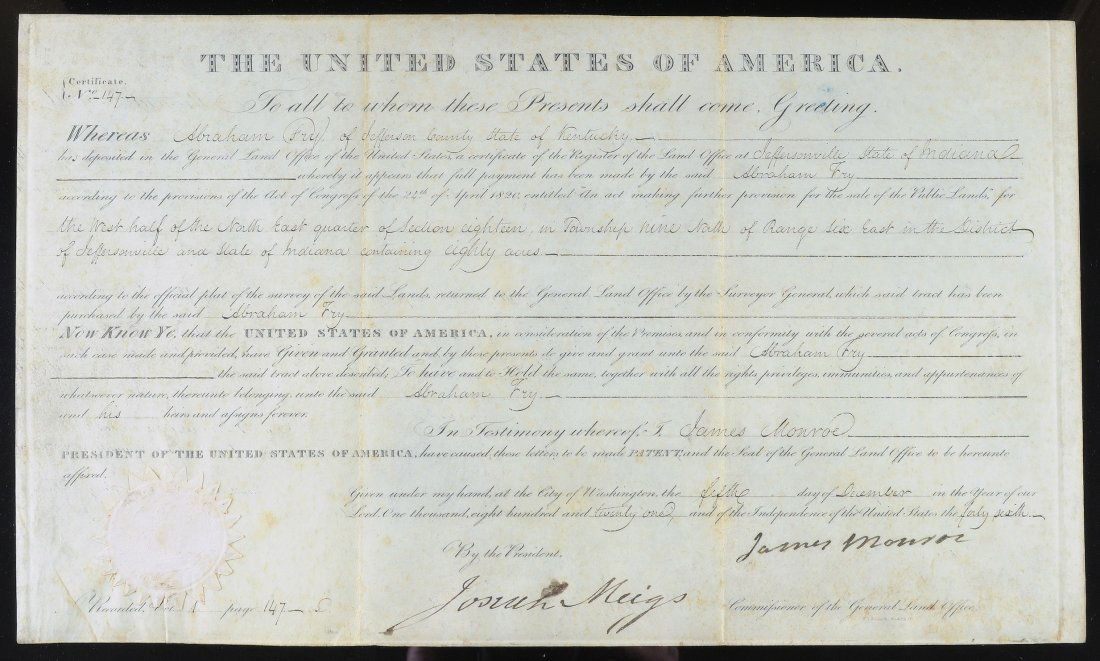 THE UNITED STATES OF AMERICA.
Certificate.
No. 147.
To all to whom these Presents shall come, Greeting.
Whereas Abraham Fry, of Jefferson County State of Kentucky
has deposited in the General Land Office of the United States, a certificate of the Register of the Land Office at Jeffersonville State of Indiana
whereby it appears that full payment has been made by the said Abraham Fry
according to the provisions of the Act of Congress of the 24th of April 1820, entitled "An act making further provision for the sale of the Public Lands," for
the West half of the North East quarter of Section eighteen, in Township Nine North of Range Six East in the District
of Jeffersonville and State of Indiana containing eighty acres
according to the official plat of the survey of the said Lands, returned to the General Land Office by the Surveyor General, which said tract has been
purchased by the said Abraham Fry
Now Know Ye, that the UNITED STATES OF AMERICA, in consideration of the Premises, and in conformity with the several acts of Congress, in
such case made and provided, have Given and Granted and by these presents do give and grant unto the said Abraham Fry
the said tract above described; To have and to Hold the same, together with all the rights, privileges, immunities, and appurtenances of
whatsoever nature, thereunto belonging, unto the said Abraham Fry
and his heirs and assigns forever.
In Testimony whereof, I, James Monroe
PRESIDENT OF THE UNITED STATES OF AMERICA, have caused these letters to be made PATENT, and the Seal of the General Land Office to be hereunto
affixed.
Given under my hand, at the City of Washington, the fifth day of December in the Year of our
Lord, One thousand, eight hundred and twenty one, and of the Independence of the United States the forty sixth.
By the President,
James Monroe
Josiah Meigs
Commissioner of the General Land Office.
Recorded, Vol. 1 page 147